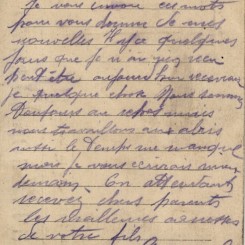 Je vous envoie ces mots
pour vous donner de mes
nouvelles quelques
jours que je n'ai
peut être aujourd'hui recevrai
je quelque chose Nous sommes
toujours au
nous travaillons aux abris
le temps me manque
mais je vous écrirai mieux
demain. En attendant
recevez chers parents
les meilleures caresses
de votre fils